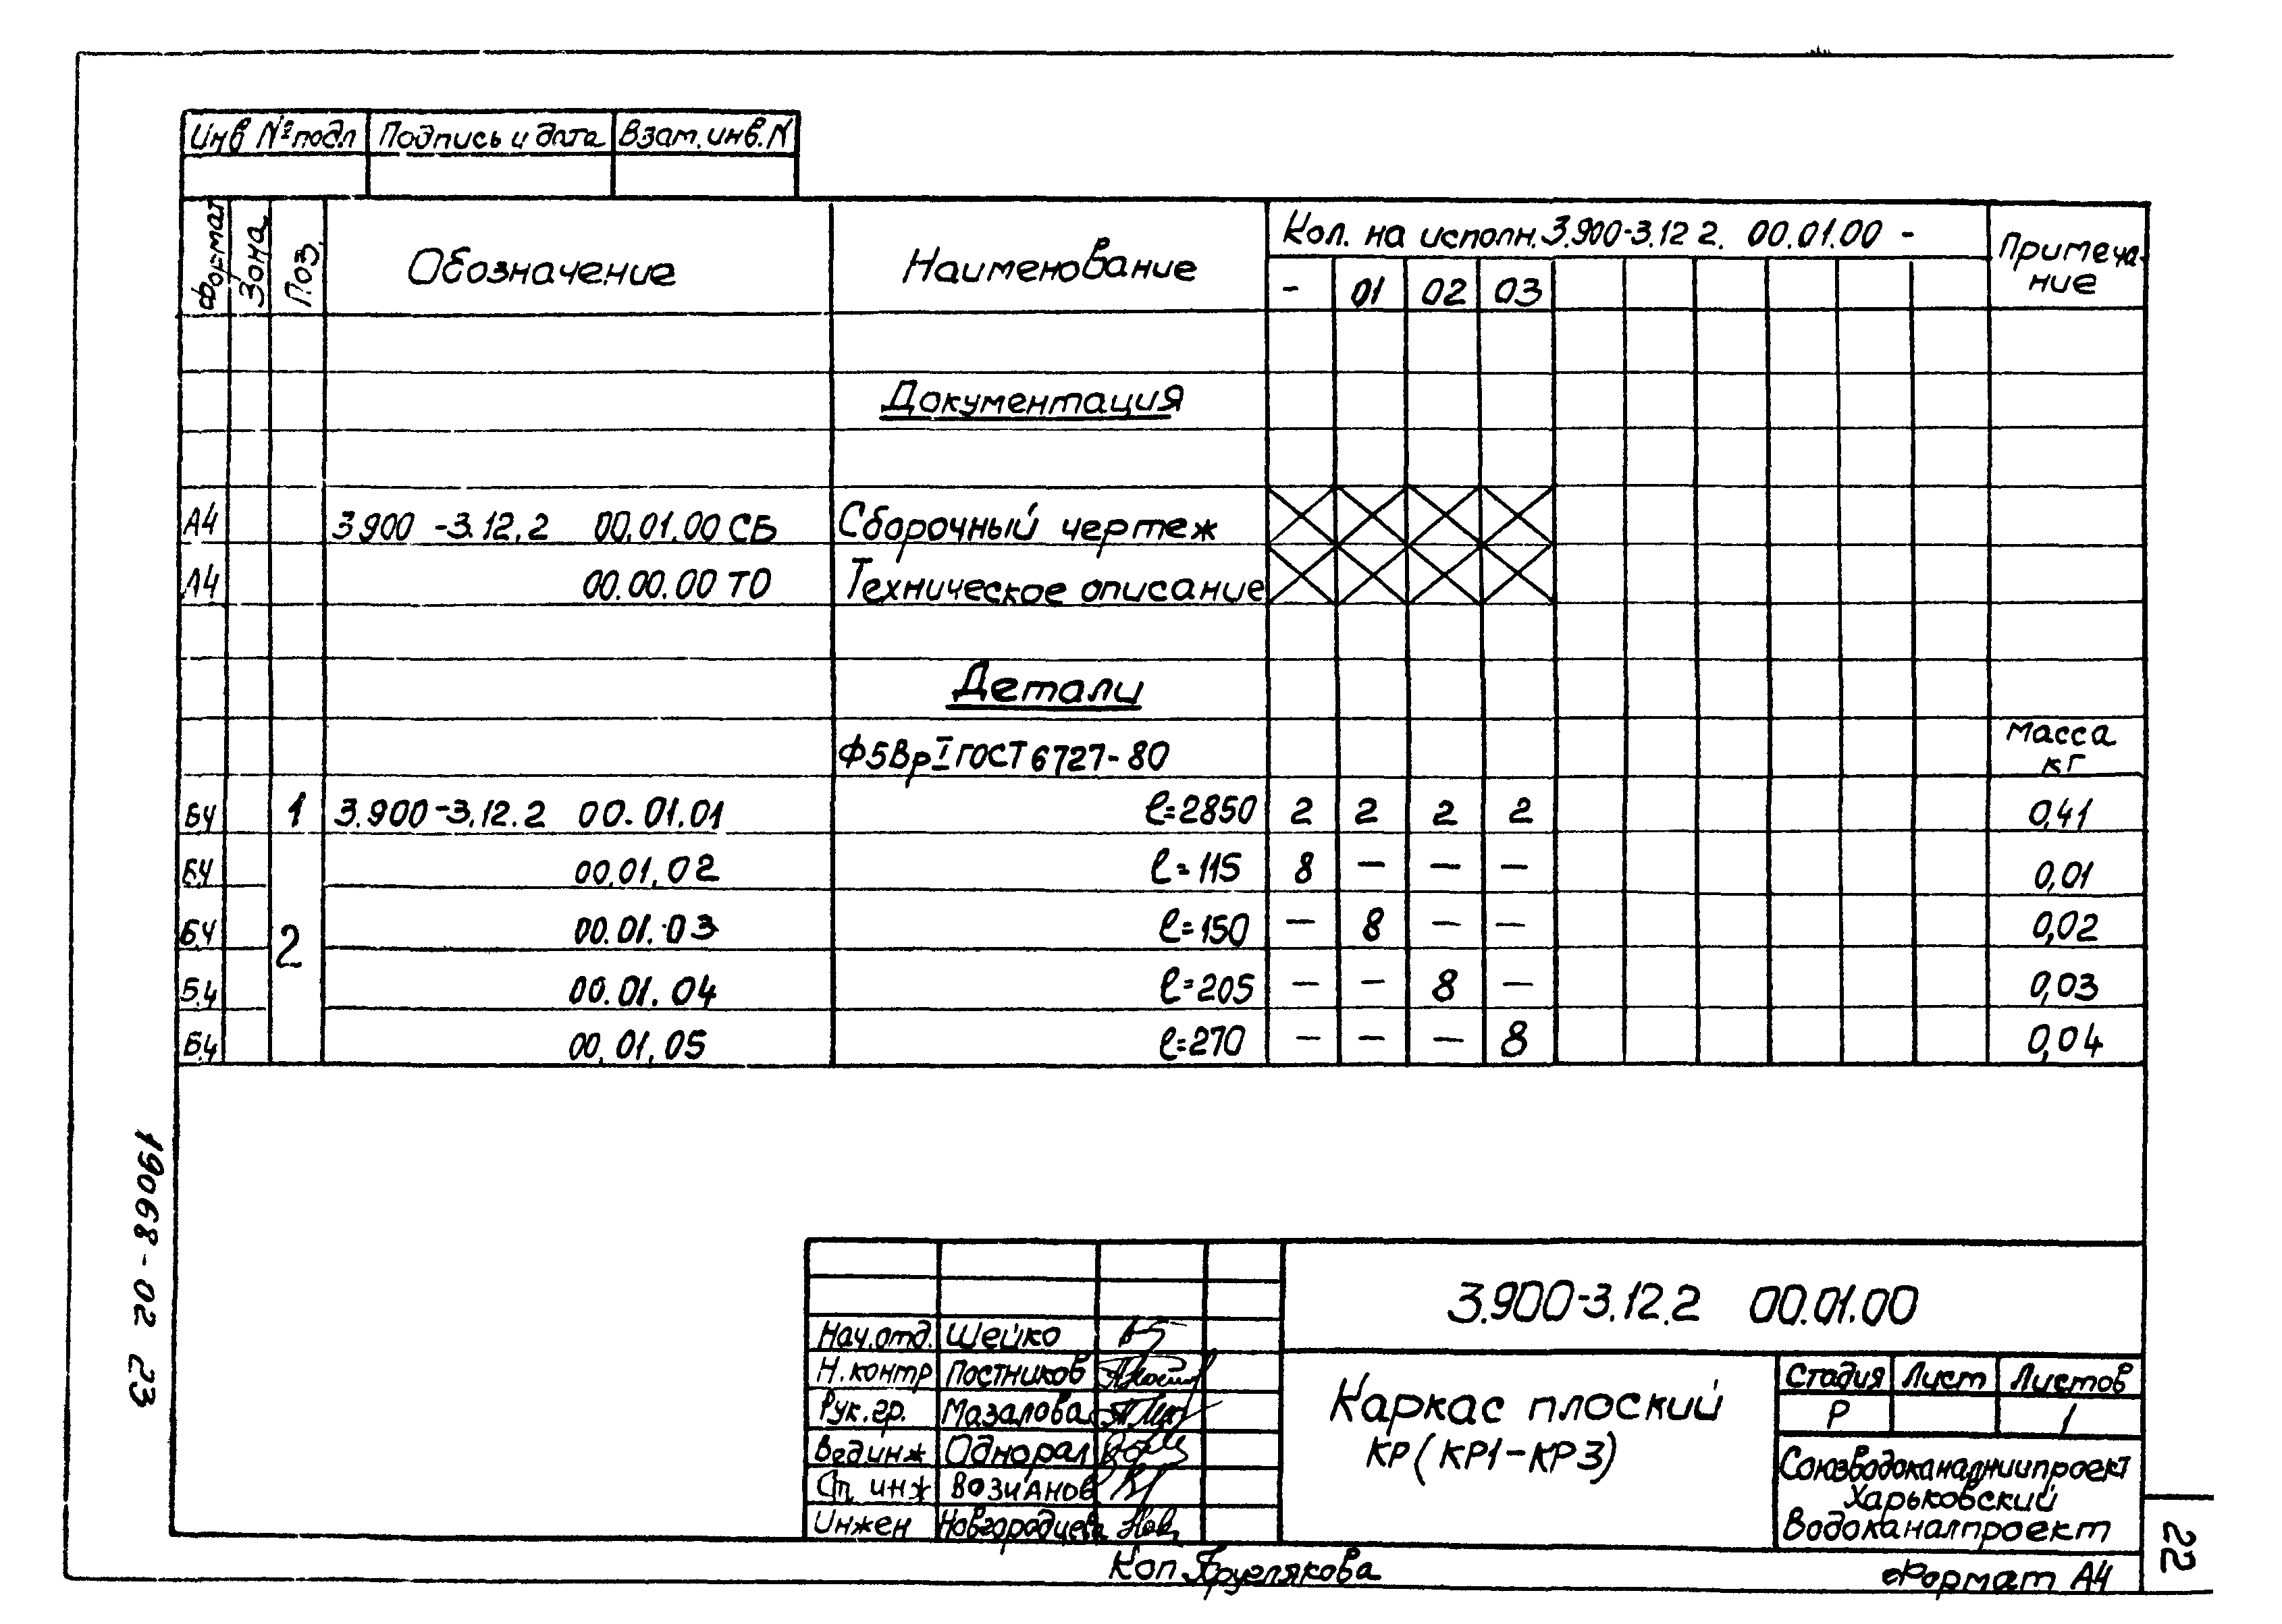 Инв № подл Подпись и дата Взам. инв. N
Формат Зона Поз. Обозначение Наименование Кол. на исполн. 3.900-3.12 2. 00.01.00 - Примеча-
ние
- 01 02 03
Документация
А4 3.900 -3.12.2 00.01.00 СБ Сборочный чертеж
А4 00.00.00 ТО Техническое описание
Детали
Ф5ВрI ГОСТ 6727-80 масса
кг
БЧ 1 3.900-3.12.2 00.01.01 ℓ=2850 2 2 2 2 0,41
БЧ 00.01.02 ℓ=115 8 — — — 0,01
Б.Ч 2 00.01.03 ℓ=150 — 8 — — 0,02
Б.Ч 00.01.04 ℓ=205 — — 8 — 0,03
Б.Ч 00.01.05 ℓ=270 — — — 8 0,04
19068-02 23
3.900-3.12.2 00.01.00
Нач.отд. Шейко
Н.контр Постников
Рук.гр. Мазалова
Вед.инж Однорал
Ст. инж Возианов
Инжен Новгородцева
Каркас плоский
КР (КР1-КР3)
Стадия Лист Листов
Р 1
Союзводоканалниипроект
Харьковский
Водоканалпроект
22
Коп. Круглякова
Формат А4